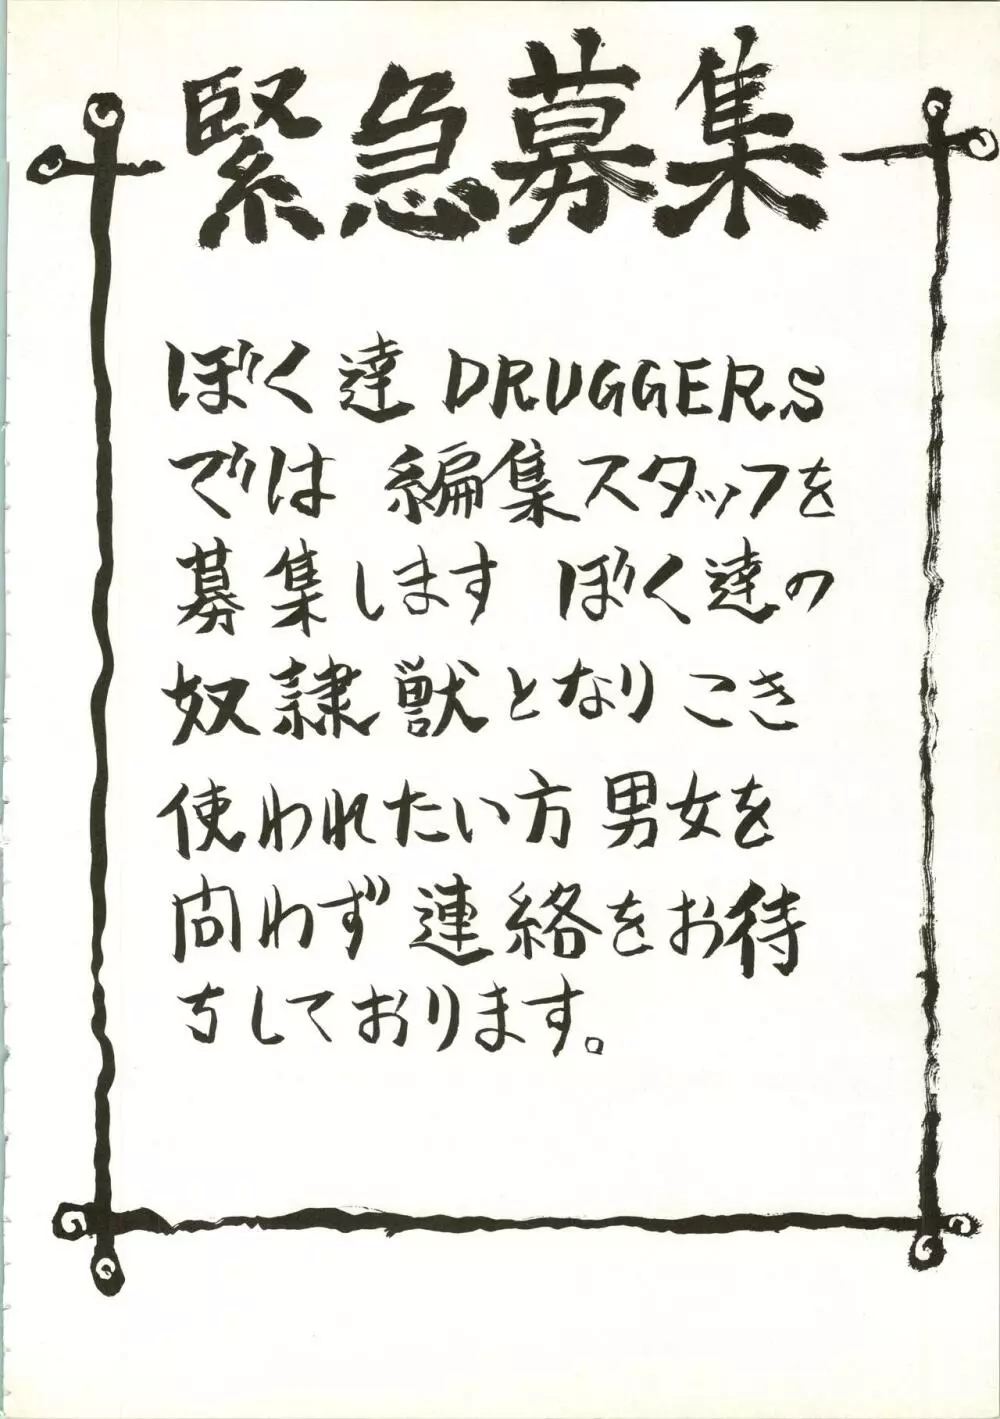 緊急募集
ぼく達 DRUGGERS
では 編集スタッフを
募集します ぼく達の
奴隷獣となり こき
使われたい方 男女を
問わず 連絡をお待
ちしております。